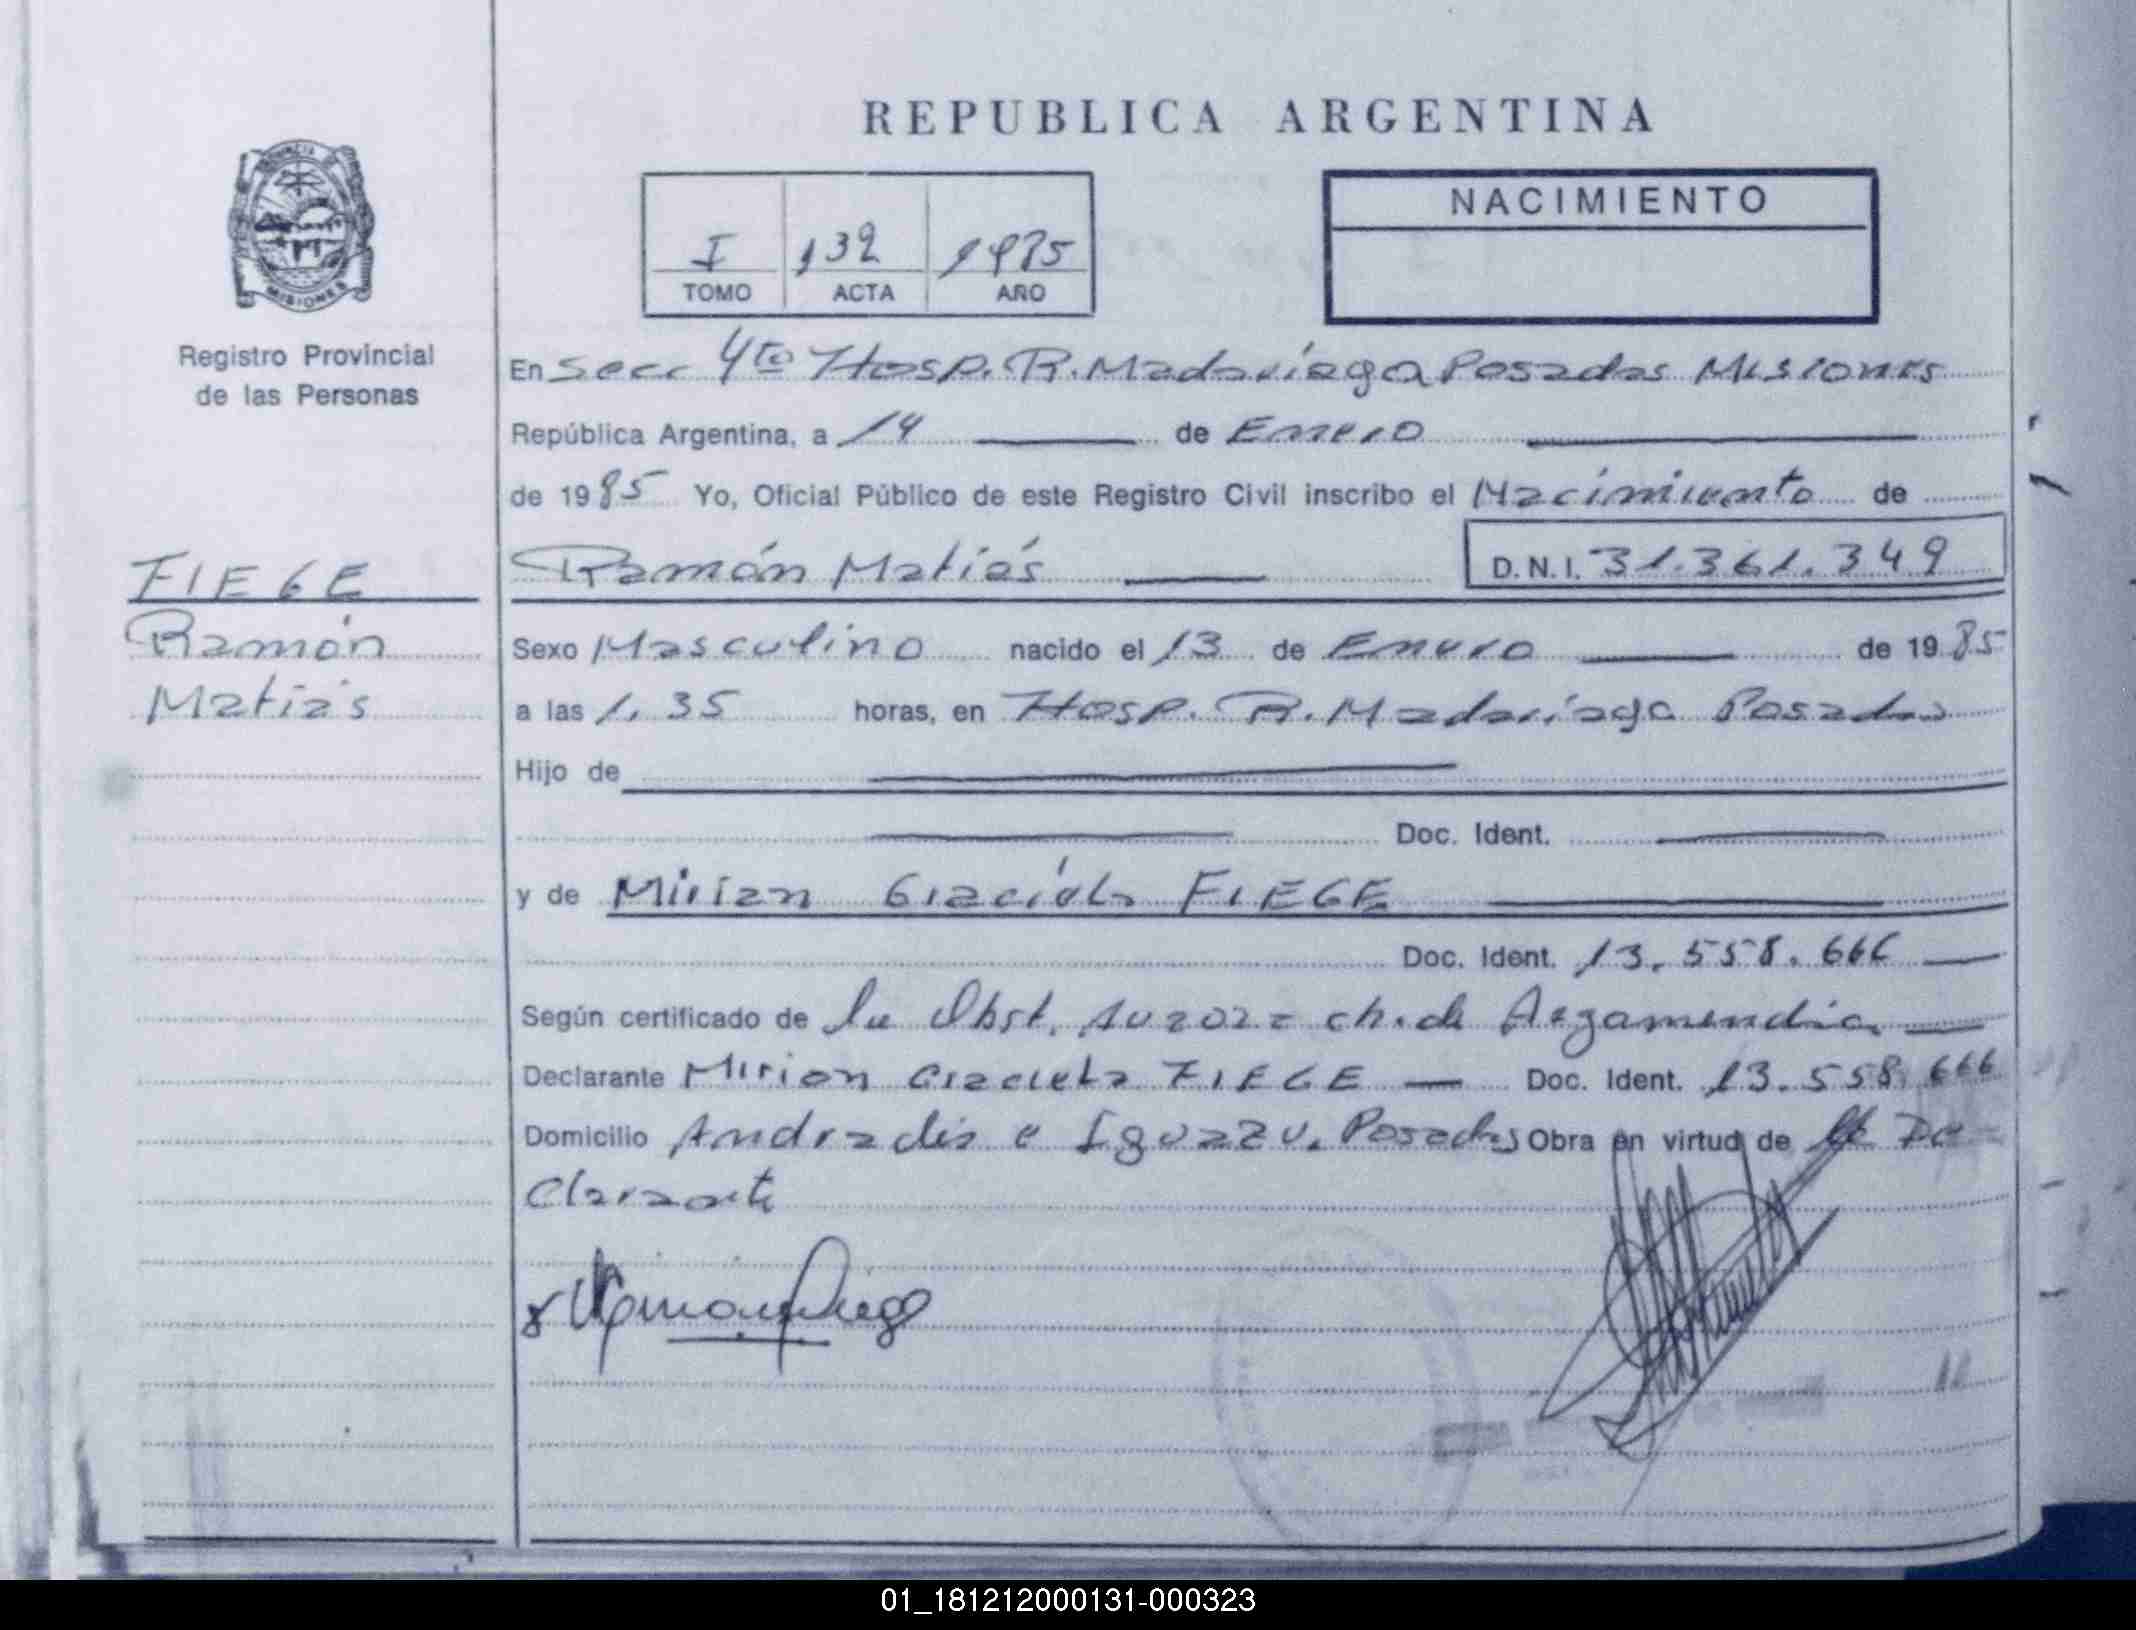 REPUBLICA ARGENTINA
PROVINCIA DE
MISIONES
Registro Provincial
de las Personas
I 132 1985
TOMO ACTA AÑO
NACIMIENTO
En Secc 4to Hosp. R. Madariaga Posadas Misiones
República Argentina, a 14 de Enero
de 1985 Yo, Oficial Público de este Registro Civil inscribo el Nacimiento de
FIEGE
Ramón
Matías
Ramón Matías D.N.I. 31.361.349
Sexo Masculino nacido el 13 de Enero de 1985
a las 1,35 horas, en Hosp. R. Madariaga Posadas
Hijo de
Doc. Ident.
y de Mirian Graciela FIEGE
Doc. Ident. 13.558.666
Según certificado de la Obst. Aurora ch. de Argamendia
Declarante Mirian Graciela FIEGE Doc. Ident. 13.558.666
Domicilio Andrade e Iguazu. Posadas Obra en virtud de De
Clarante
01_181212000131-000323